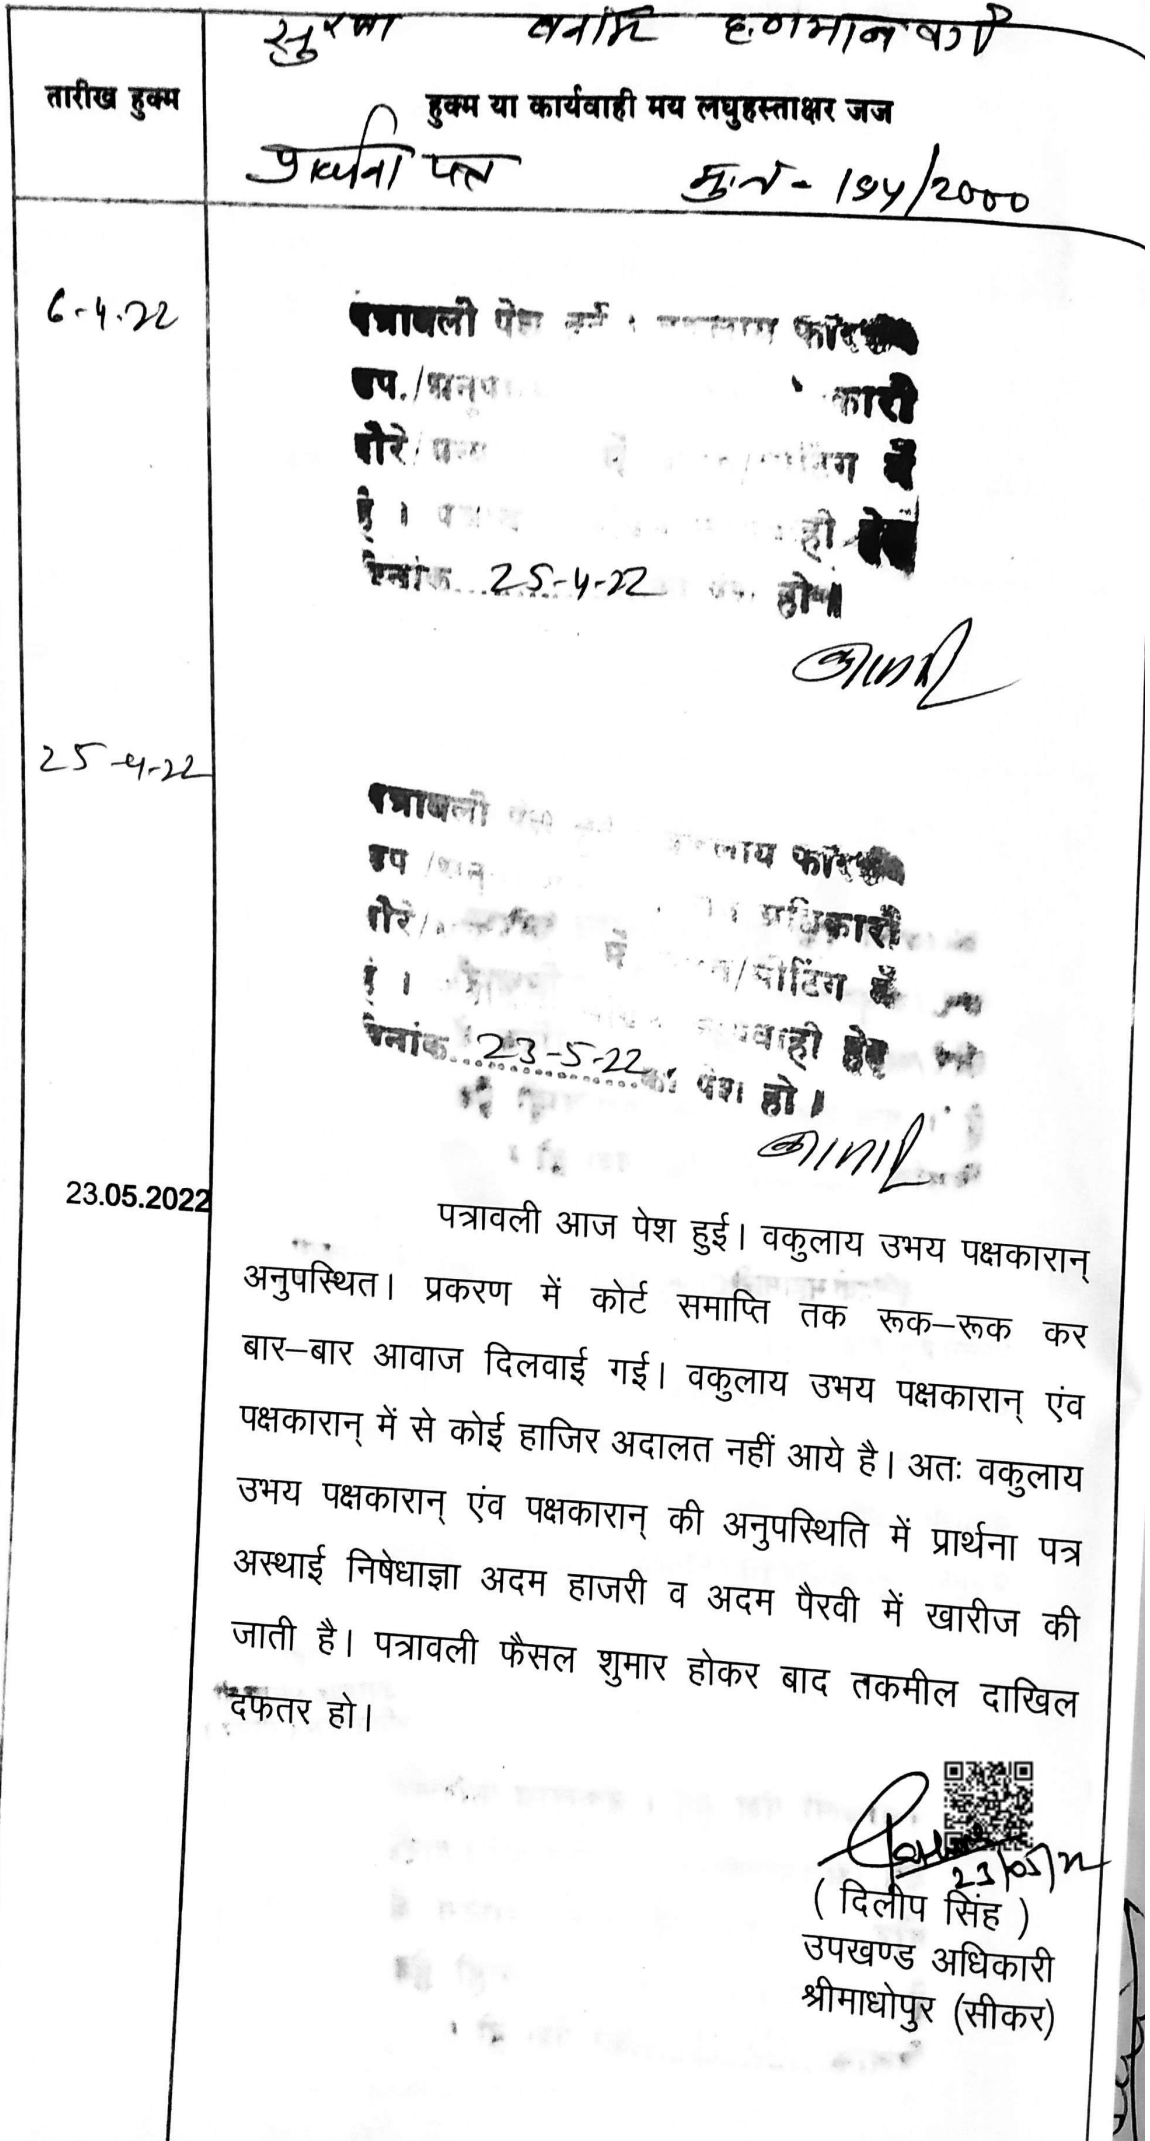 सुरजा बनाम हणमान वगै
तारीख हुक्म
हुक्म या कार्यवाही मय लघुहस्ताक्षर जज
प्रार्थना पत्र मु.नं - 194/2000
6-4-22
पत्रावली पेश हुई।
उप./अनुप कारी
दौरे/ में /मीटिंग में
है। ही हेतु
दिनांक 25-4-22 पेश हो॥
25-4-22
पत्रावली पेश वकलाय
उप /अनु अधिकारी
दौरे/ में /मीटिंग में
है। कार्यवाही हेतु
दिनांक 23-5-22 को पेश हो।
23.05.2022
पत्रावली आज पेश हुई। वकुलाय उभय पक्षकारान्
अनुपस्थित। प्रकरण में कोर्ट समाप्ति तक रूक–रूक कर
बार–बार आवाज दिलवाई गई। वकुलाय उभय पक्षकारान् एंव
पक्षकारान् में से कोई हाजिर अदालत नहीं आये है। अतः वकुलाय
उभय पक्षकारान् एंव पक्षकारान् की अनुपस्थिति में प्रार्थना पत्र
अस्थाई निषेधाज्ञा अदम हाजरी व अदम पैरवी में खारीज की
जाती है। पत्रावली फैसल शुमार होकर बाद तकमील दाखिल
दफतर हो।
23/05/22
( दिलीप सिंह )
उपखण्ड अधिकारी
श्रीमाधोपुर (सीकर)